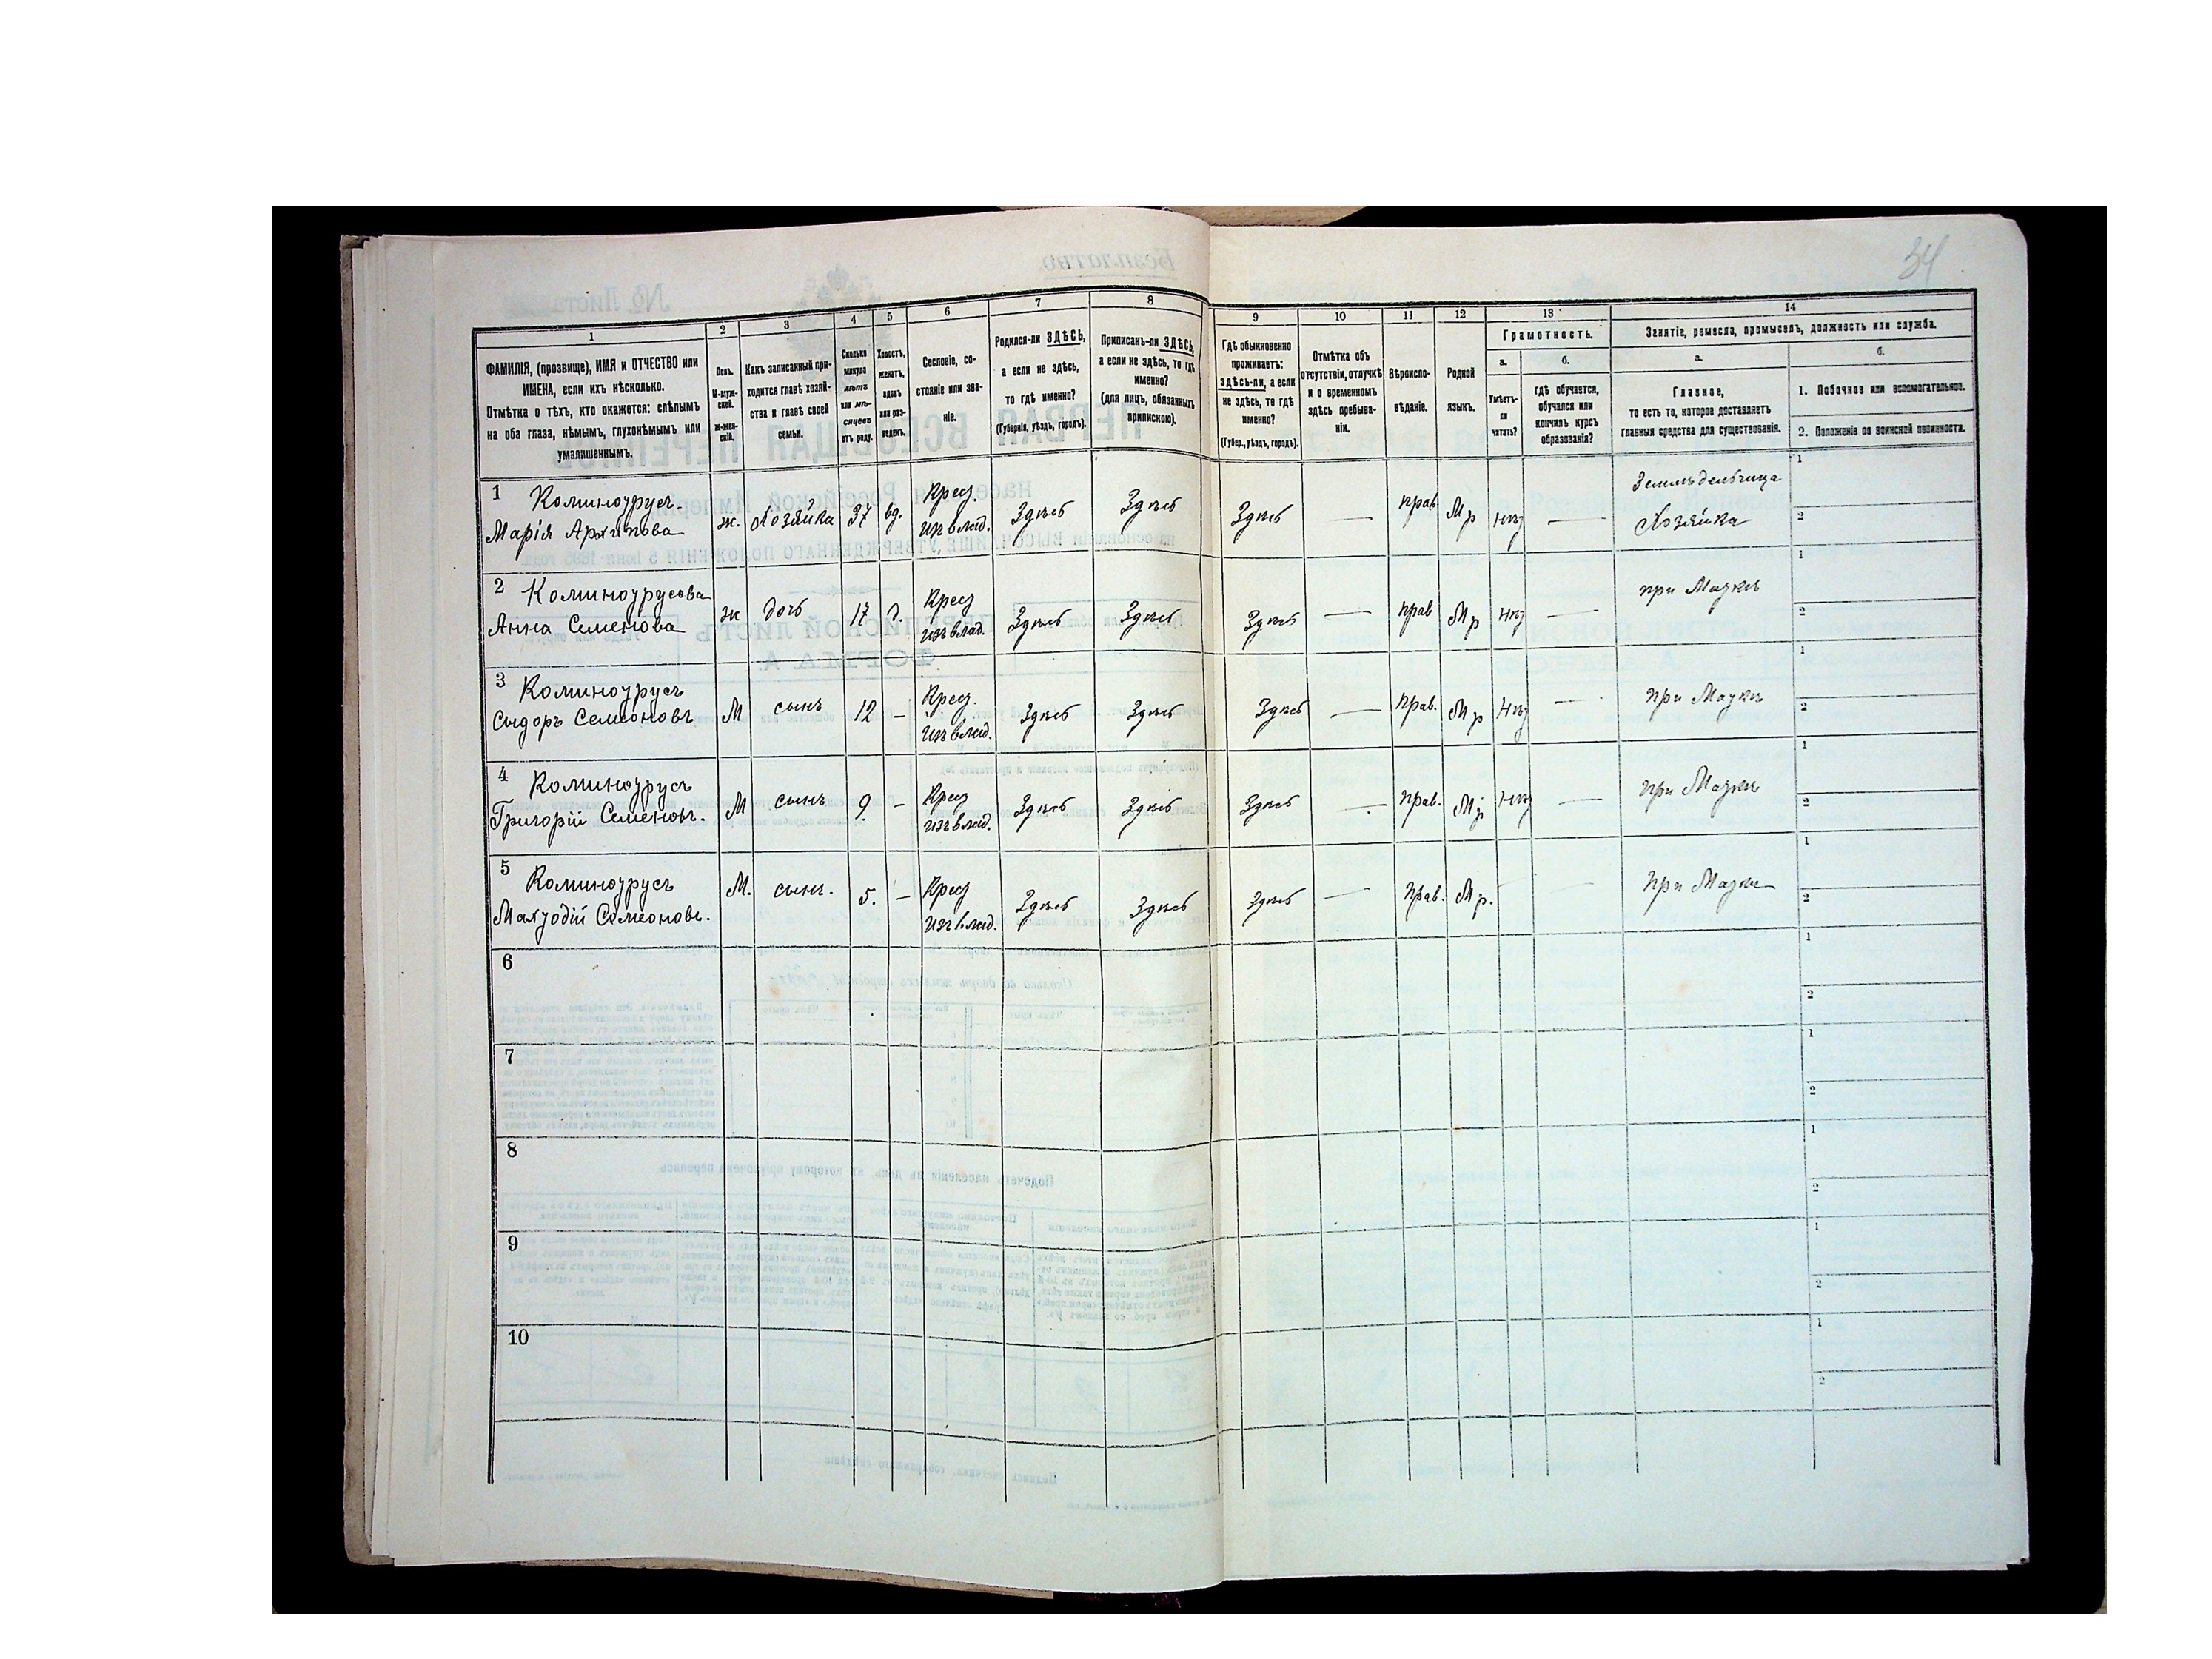 34
1
2
3
4
5
6
7
8
9
10
11
12
13
14
ФАМИЛІЯ, (прозвище), ИМЯ и ОТЧЕСТВО или
ИМЕНА, если ихъ нѣсколько.
Отмѣтка о тѣхъ, кто окажется: слѣпымъ
на оба глаза, нѣмымъ, глухонѣмымъ или
умалишеннымъ.
Полъ.
М-муж-
ской.
Ж-жен-
скій.
Какъ записанный при-
ходится главѣ хозяй-
ства и главѣ своей
семьи.
Сколько
минуло
лѣтъ
или мѣ-
сяцевъ
отъ роду.
Холостъ,
женатъ,
вдовъ
или раз-
веденъ.
Сословіе, со-
стояніе или зва-
ніе.
Родился-ли ЗДѢСЬ,
а если не здѣсь,
то гдѣ именно?
(Губернія, уѣздъ, городъ).
Приписанъ-ли ЗДѢСЬ,
а если не здѣсь, то гдѣ
именно?
(для лицъ, обязанныхъ
припискою).
Гдѣ обыкновенно
проживаетъ:
здѣсь-ли, а если
не здѣсь, то гдѣ
именно?
(Губер., уѣздъ, городъ).
Отмѣтка объ
отсутствіи, отлучкѣ
и о временномъ
здѣсь пребыва-
ніи.
Вѣроиспо-
вѣданіе.
Родной
языкъ.
Грамотность.
а.
Умѣетъ-
ли
читать?
б.
гдѣ обучается,
обучался или
кончилъ курсъ
образованія?
Занятіе, ремесло, промыселъ, должность или служба.
а.
Главное,
то есть то, которое доставляетъ
главныя средства для существованія.
б.
1. Побочное или вспомогательное.
2. Положеніе по воинской повинности.
1 Коминоурусъ
Марія Архипова
ж. Хозяйка 37 вд. Крест. изъ влад. Здѣсь Здѣсь Здѣсь — прав Мр Нѣт — Земледѣльчица
Хозяйка
1
2
2 Коминоурусова
Анна Семенова
ж дочь 17 д. Крест изъ влад. Здѣсь Здѣсь Здѣсь — прав Мр Нѣт —
1
2
3 Коминоурусъ
Сидоръ Семеоновъ
М сынъ 12 — Крест. изъ влад. Здѣсь Здѣсь Здѣсь — прав. Мр Нѣт —
1
2
4 Коминоурусъ
Григорій Семеновъ.
М сынъ 9. — Крест изъ влад. Здѣсь Здѣсь Здѣсь — прав. Мр Нѣт —
1
2
5 Коминоурусъ
М. сынъ. 5. — Крест изъ влад. Здѣсь Здѣсь Здѣсь — прав. Мр.
1
2
6
1
2
7
1
2
8
1
2
9
1
2
10
1
2